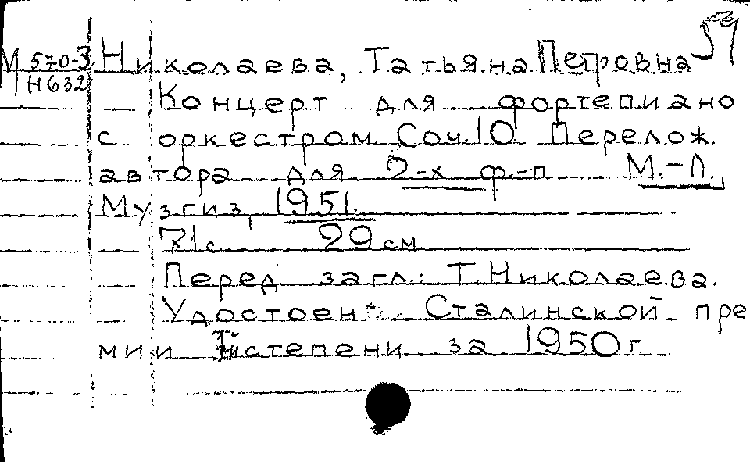 М 570-3 Николаева, Татьяна Петровна
Н 632 Концерт для фортепиано
с оркестром Соч. 10 Перелож.
автора для 2-х ф-п М.-Л.,
Музгиз, 1951.
71с 29 см
Перед загл.: Т. Николаева.
Удостоен Сталинской пре
мии степени за 1950 г